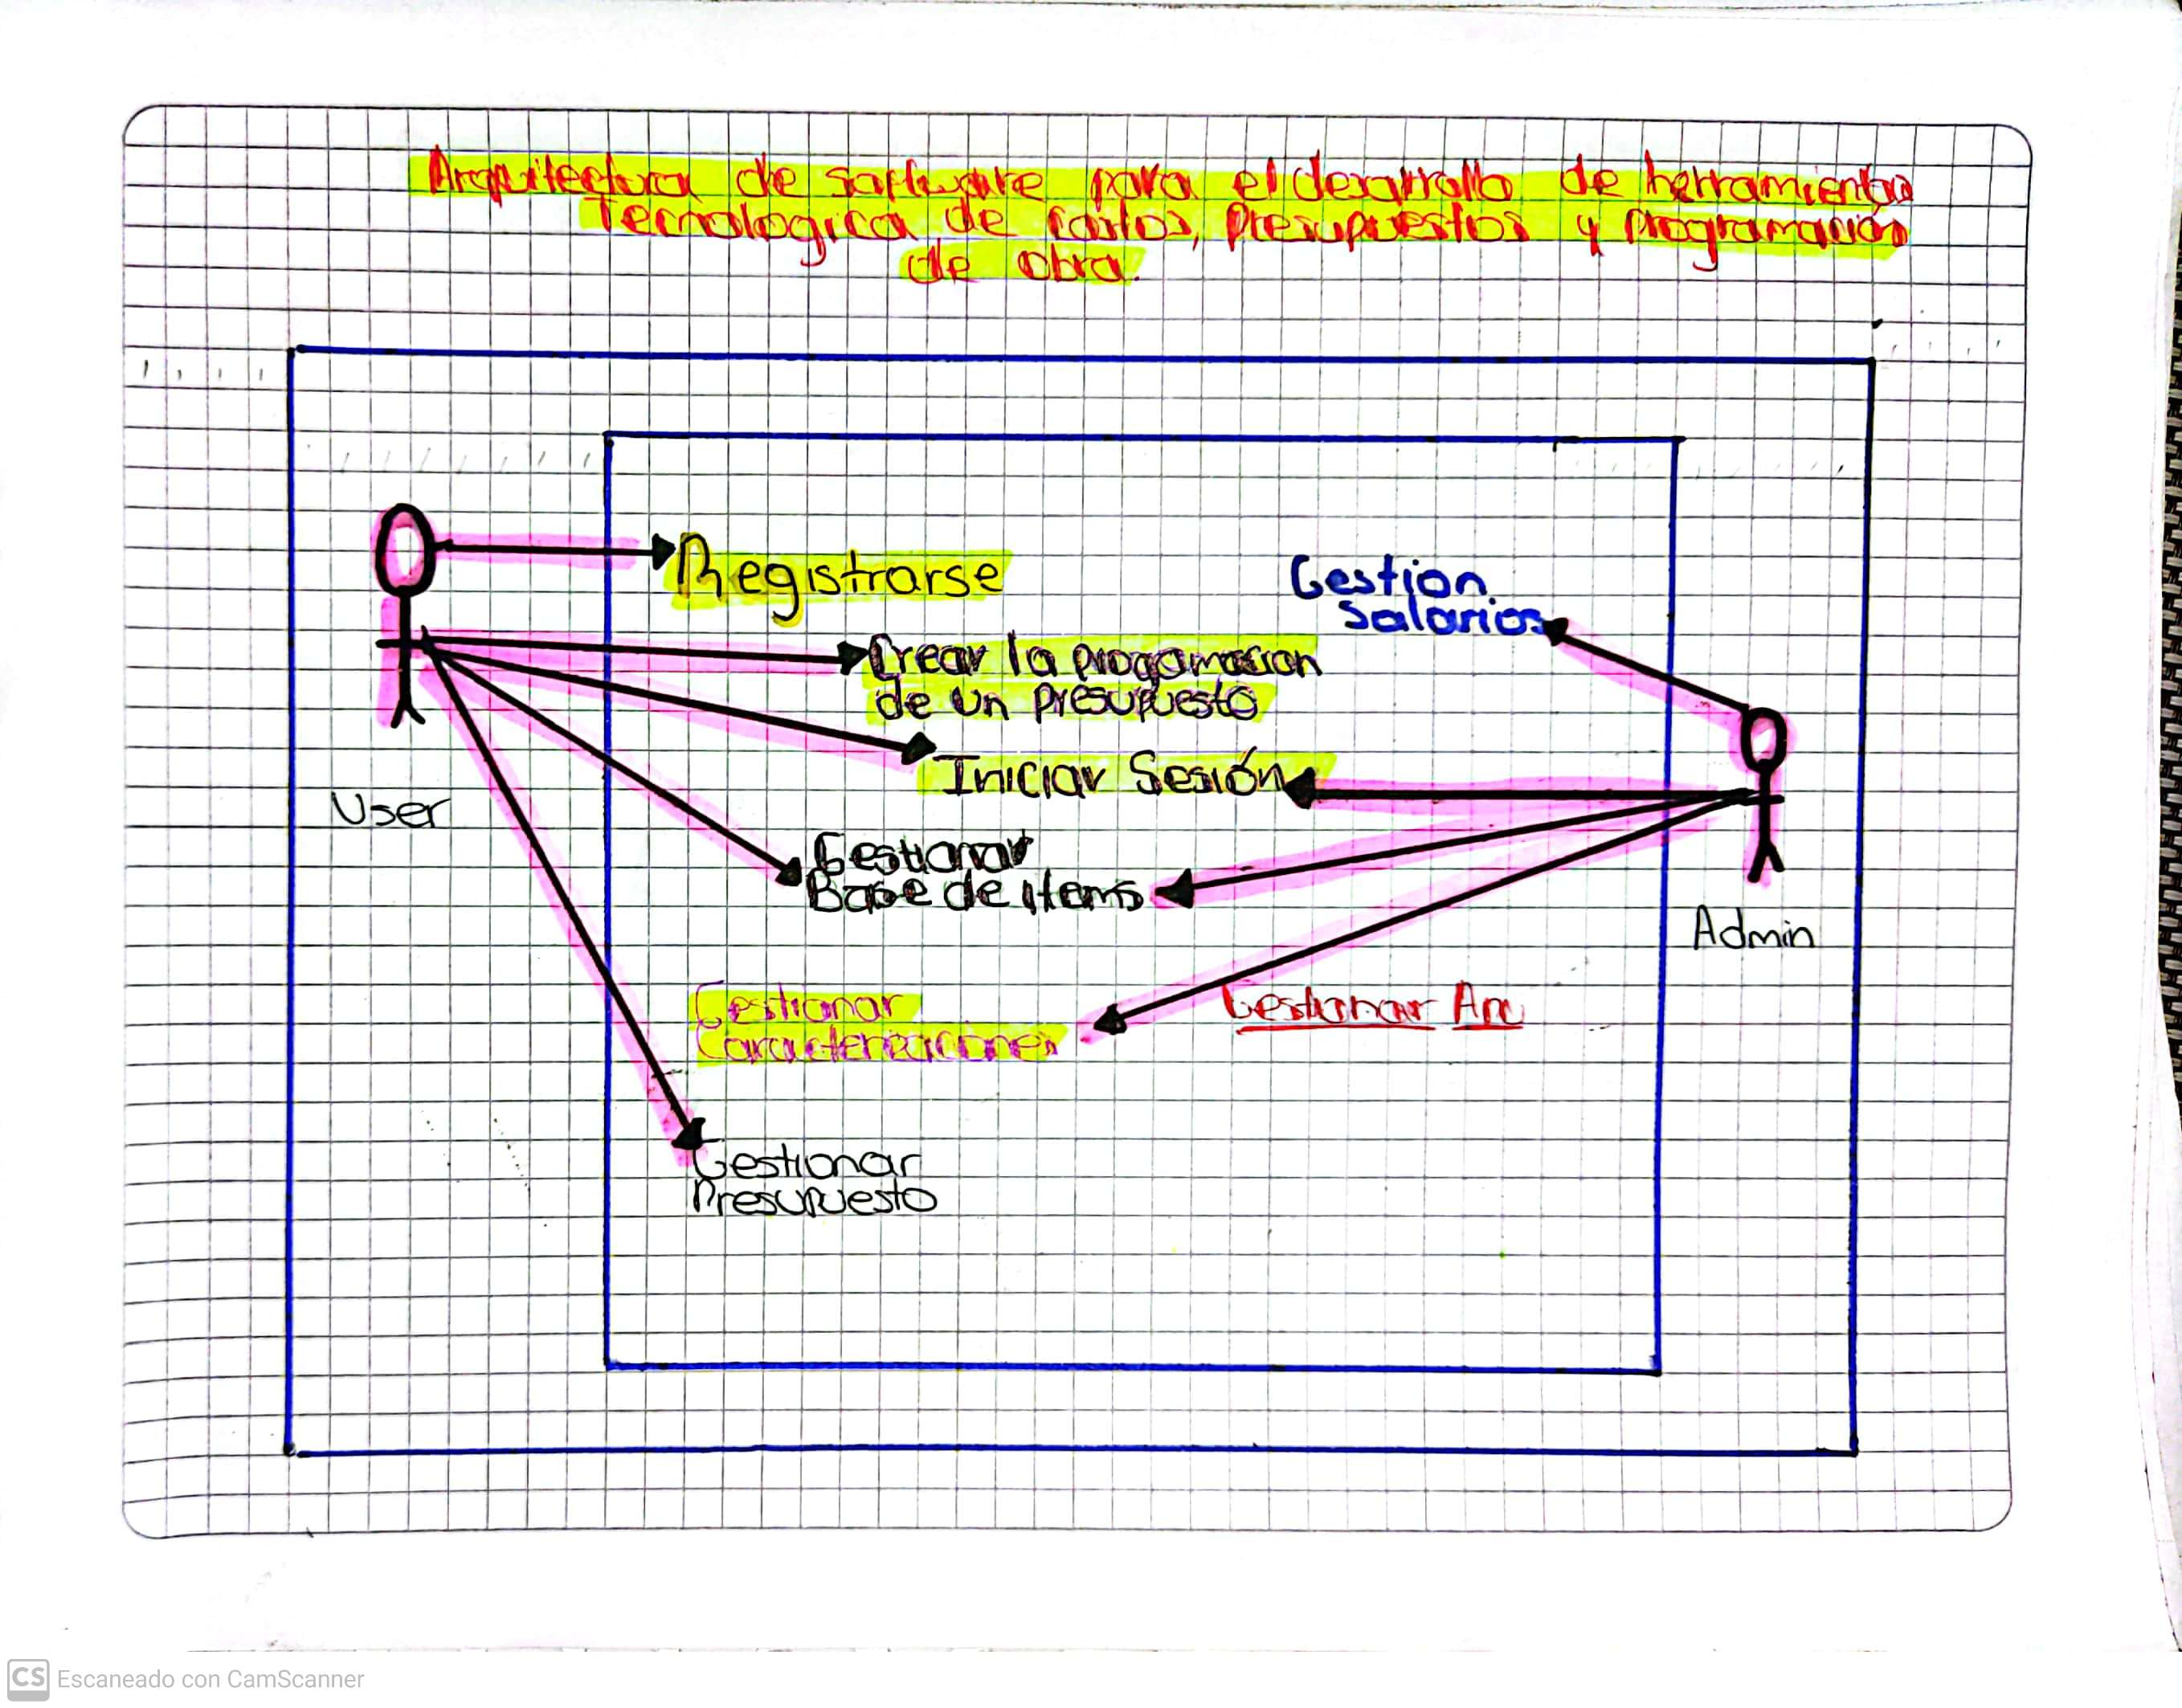 Arquitectura de software para el desarrollo de herramienta
Tecnologica de costos, Presupuestos y programación
de obra.
Registrarse
Gestion
Salarios
Crear la progamacion
de un Presupuesto
Iniciar Sesión
User
Gestionar
Base de items
Admin
Gestionar
Caracterizaciones
Gestionar
Gestionar
Presupuesto
CS Escaneado con CamScanner